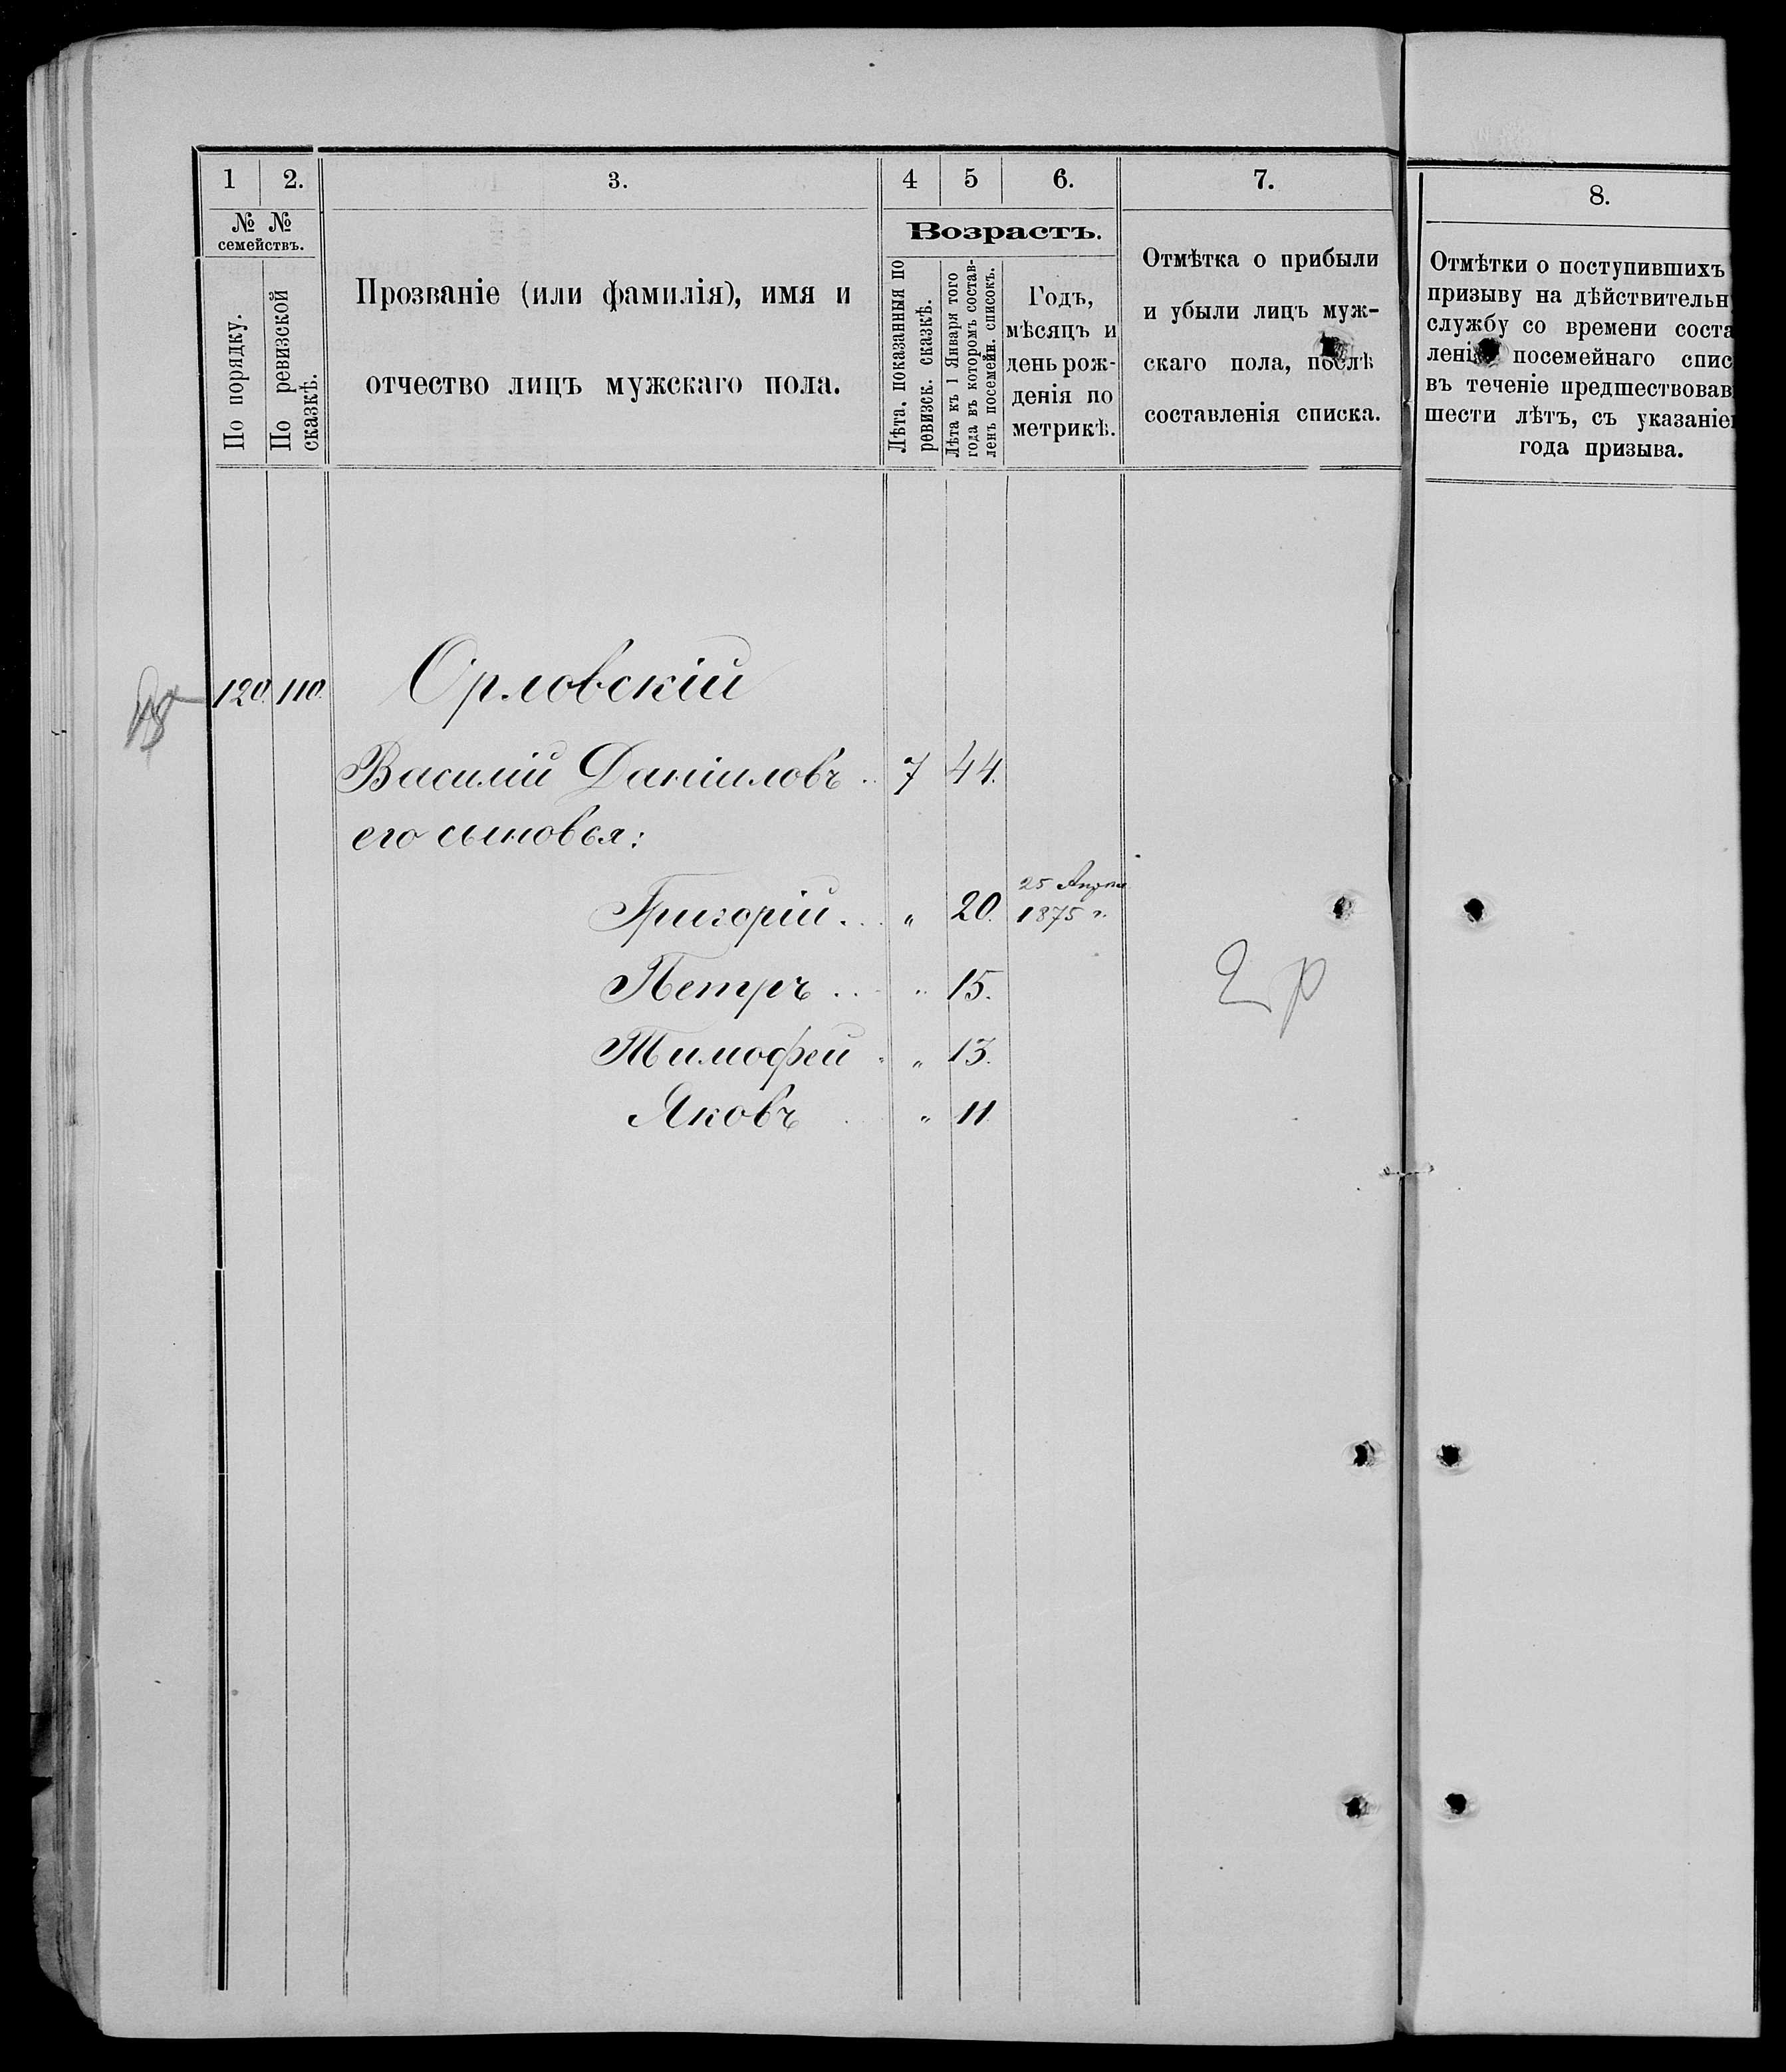 1 2. 3. 4 5 6. 7.
№ № семействъ.
По порядку.
По ревизской сказкѣ.
Прозваніе (или фамилія), имя и
отчество лицъ мужскаго пола.
Возрастъ.
Лѣта, показанныя по
ревизск. сказкѣ.
Лѣта къ 1 Января того
года въ которомъ состав-
ленъ посемейн. списокъ.
Годъ,
мѣсяцъ и
день рож-
денія по
метрикѣ.
Отмѣтка о прибыли
и убыли лицъ муж-
скаго пола, послѣ
составленія списка.
8.
Отмѣтки о поступившихъ
призыву на дѣйствительн
службу со времени соста
лені посемейнаго спис
въ теченіе предшествовав
шести лѣтъ, съ указаніе
года призыва.
120. 110. Орловскій
Василій Даніиловъ .. 7 44.
его сыновья:
Григорій . . . „ 20. 25 Апреля
1875 г.
Петръ . . . „ 15.
Тимофей . „ 13.
Яковъ . . „ 11
2 р